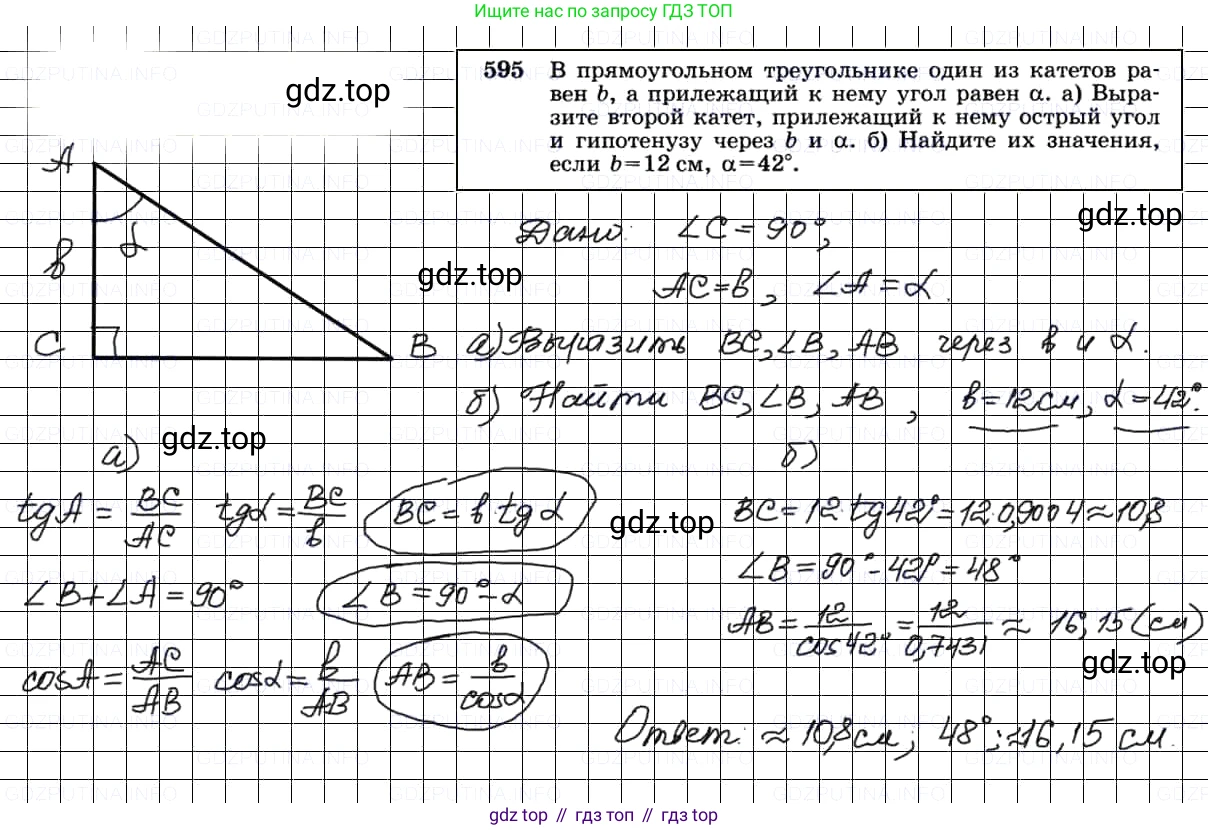 Ищите нас по запросу ГДЗ ТОП
GDZPUTINA.INFO
gdz.top
595 В прямоугольном треугольнике один из катетов ра-
вен b, а прилежащий к нему угол равен α. а) Выра-
зите второй катет, прилежащий к нему острый угол
и гипотенузу через b и α. б) Найдите их значения,
если b=12 см, α=42°.
A
α
b
C
B
gdz.top
gdz.top
Дано: ∠C = 90°,
AC=b, ∠A=α.
а) Выразить BC, ∠B, AB через b и α.
б) Найти BC, ∠B, AB, b=12см, α=42°.
gdz.top
а)
tgA = BC/AC tgα = BC/b BC = b·tgα
∠B+∠A=90° ∠B=90°-α
cosA = AC/AB cosα = b/AB AB = b/cosα
gdz.top
б)
BC=12·tg42°=12·0,9004≈10,8
∠B=90°-42°=48°
AB = 12/cos42° = 12/0,7431 ≈ 16,15 (см)
gdz.top
Ответ: ≈10,8см; 48°; ≈16,15 см.
gdz.top // гдз топ // gdz top